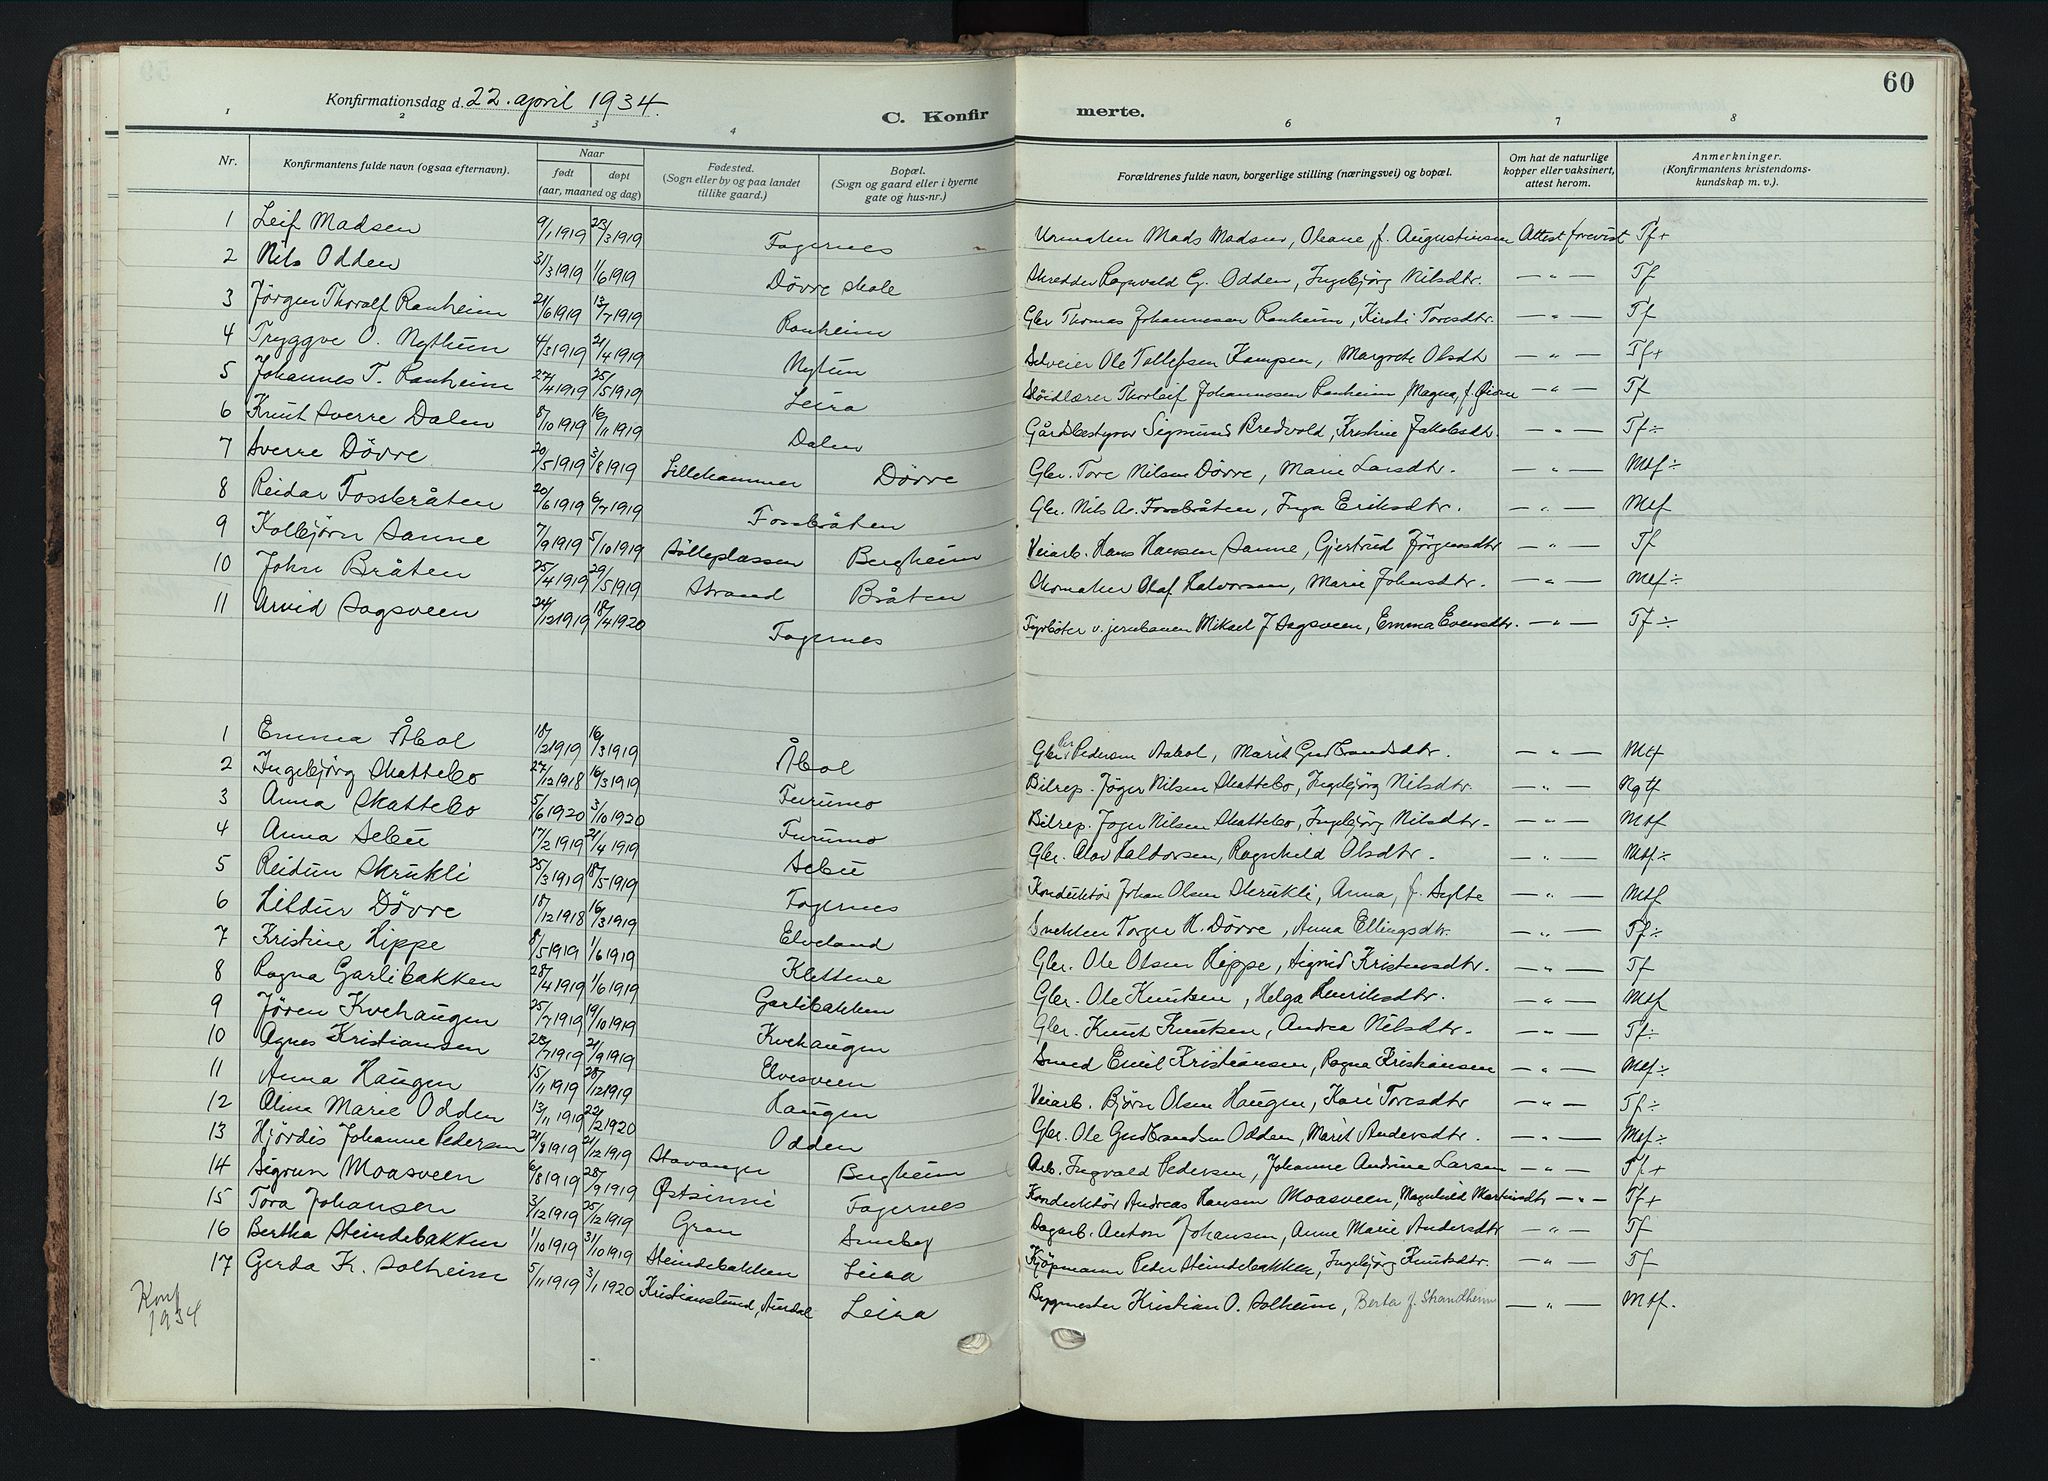 60
Konfirmationsdag d. 22. april 1934.
C. Konfir merte.
1 2 3 4 6 7 8
Nr. Konfirmantens fulde navn (ogsaa efternavn). Naar født døpt (aar, maaned og dag) Fødested. (Sogn eller by og paa landet tillike gaard.) Bopæl. (Sogn og gaard eller i byerne gate og hus-nr.) Forældrenes fulde navn, borgerlige stilling (næringsvei) og bopæl. Om hat de naturlige kopper eller vaksinert, attest herom. Anmerkninger. (Konfirmantens kristendoms- kundskap m. v.).
1 Leif Madsen 9/1 1919 23/3 1919 Fagernes Urmaker Mads Madsen, Oleane, f. Augustinsen Attest forevist Tf+
2 Nils Odden 31/3 1919 1/6 1919 Døvre skole Skredder Ragnvald G. Odden, Ingebjørg Nilsdtr. — " — Tf
3 Jørgen Thoralf Ranheim 21/6 1919 13/7 1919 Ranheim Gbr Thomas Johannesen Ranheim, Kirsti Toresdtr. — " — Tf
4 Tryggve O. Nythun 4/3 1919 21/4 1919 Nytun Selveier Ole Tollefsen Kampen, Margrete Olsdtr — " — Tf+
5 Johannes T. Ranheim 27/4 1919 25/5 1919 Leira Sløidlærer Thorleif Johannesen Ranheim, Magna, f. — " — Tf
6 Knut Sverre Dalen 8/10 1919 16/11 1919 Dalen Gårdsbestyrer Sigmund Bredvold, Kristine Jakobsdtr. — " — Tf÷
7 Sverre Døvre 20/5 1919 3/8 1919 Lillehammer Døvre Gbr. Tore Nilsen Døvre, Marie Larsdtr. — " — Mtf÷
8 Reidar Fossbråten 20/6 1919 6/7 1919 Fossbråten Gbr. Nils Ar. Fossbråten, Inga Eriksdtr. — " — Mtf
9 Kolbjørn Sanne 7/9 1919 5/10 1919 Sølleplassen Bergheim Veiarb. Hans Hansen Sanne, Gjertrud Jørgensdtr — " — Tf
10 John Bråten 25/4 1919 29/5 1919 Strand Bråten Skomaker Olaf Halvorsen, Marie Johnsdtr. — " — Mtf÷
11 Arvid Sagsveen 24/12 1919 18/4 1920 Fagernes Fyrbøter v. jernbanen Mikael J Sagsveen, Emma Evensdtr. — " — Tf÷
1 Emma Åbol 18/2 1919 16/3 1919 Åbol Gbr. Per Pedersen Aabol, Marit Gudbrandsdtr. — " — Mtf
2 Ingebjørg Skattebo 27/12 1918 16/3 1919 Furumo Bilrep. Jøger Nilsen Skattebo, Ingebjørg Nilsdtr. — " — Ngtf
3 Anna Skattebo 5/6 1920 3/10 1920 Furumo Bilrep. Jøger Nilsen Skattebo, Ingebjørg Nilsdtr. — " — Mtf
4 Anna Sebu 17/2 1919 21/4 1919 Sebu Gbr. Olav Haldorsen, Ragnhild Olsdtr. — " — Mtf÷
5 Reidun Skrukli 25/3 1919 18/5 1919 Fagernes Konduktør Johan Olsen Skrukli, Anna, f. Sylte — " — Mtf
6 Hildur Døvre 18/12 1918 16/3 1919 Elveland Snekker Torger H. Døvre, Anna Ellingsdtr. — " — Tf÷
7 Kristine Hippe 8/5 1919 1/6 1919 Klettene Gbr. Ole Olsen Hippe, Sigrid Kristensdtr. — " — Tf
8 Ragna Garlibakken 28/4 1919 1/6 1919 Garlibakken Gbr. Ole Knutsen, Helga Henriksdtr. — " — Mtf
9 Jøren Kvehaugen 25/7 1919 19/10 1919 Kvehaugen Gbr. Knut Knutsen, Andrea Nilsdtr. — " — Tf÷
10 Agnes Kristiansen 28/7 1919 21/9 1919 Elvesveen Smed Emil Kristiansen, Ragna Kristiansen — " — Mtf÷
11 Anna Haugen 15/11 1919 28/12 1919 Haugen Veiarb. Bjørn Olsen Haugen, Kari Toresdtr — " — Tf÷
12 Olina Marie Odden 13/11 1919 22/2 1920 Odden Gbr. Ole Gudbrandsen Odden, Marit Andersdtr. — " — Mtf÷
13 Hjørdis Johanne Pedersen 21/8 1919 21/12 1919 Stavanger Bergheim Arb. Ingvald Pedersen, Johanne Andrine Larsen — " — Tf+
14 Sigrun Moasveen 6/8 1919 28/9 1919 Østsinni Fagernes Konduktør Andreas Hansen Moasveen, Magnhild Martinsdtr — " — Tf+
15 Tora Johansen 3/12 1919 25/12 1919 Gran Smeby Dagarb. Anton Johansen, Anne Marie Andersdtr — " — Tf
16 Bertha Steindebakken 1/10 1919 31/10 1919 Steindebakken Leira Kjøpmann Peder Steindebakken, Ingebjørg Knutsdtr. — " — Tf
17 Gerda K. Solheim 5/11 1919 3/1 1920 Kristianslund, Aurdal Leira Bygmester Kristian O. Solheim, Berta f. Strandheim — " — Mtf.
Konf
1934